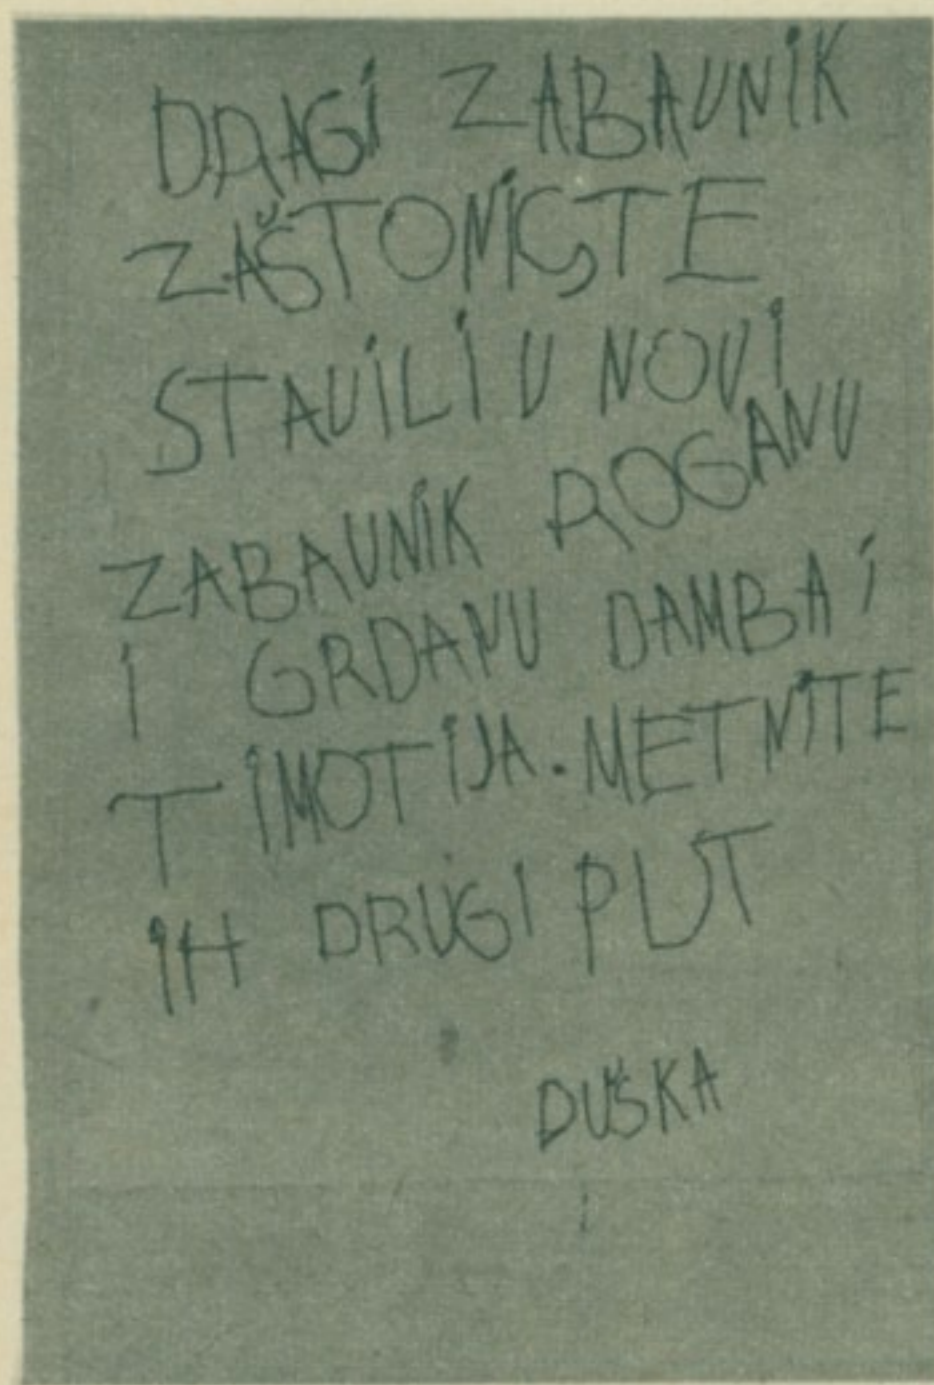 DRAGI ZABAUNIK
ZAŠTO NISTE
STAUILI U NOVI
ZABAUNIK ROGANU
I GRDANU DAMBA I
TIMOTIJA. METNITE
IH DRUGI PUT
DUŠKA